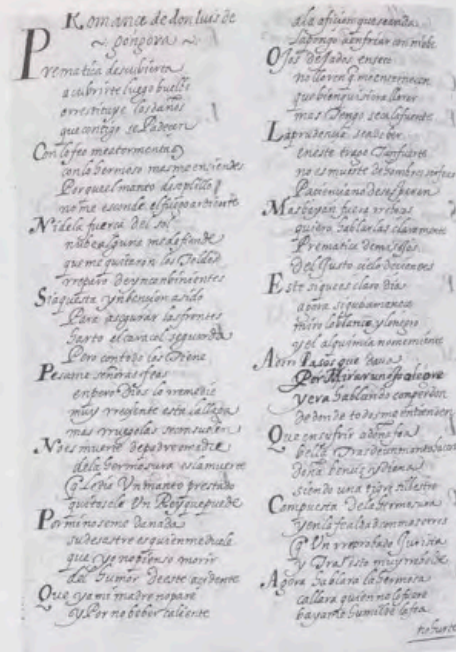 Romance de don luis de
gongora
Prematica descubierta
a cubrirte luego buelbe
o rrestituye los daños
que contigo se Padecen
Con lo feo me atormentas
con lo hermoso mas me enciendes
Porque el manto
no me esconde el fuego ardiente
Ni de la fuerça del sol
nube alguna me defiende
que me quitaron los
rreparo de ynconbinientes
Si aquesta ynbençion a sido
Para asegurar las frentes
harto el caracol se guarda
Pero con todo los tiene
Pesame señoras feas
enpero Dios lo rremedie
muy rreçiente esta la llaga
mas no se consuelen
No es muerte de padre o madre
de la hermosura es la muerte
q le die Un manto prestado
quitasele Un Rey que puede
Por mi no se me da nada
su desastre es quien me duele
que yo no pienso morir
del humor de este açidente
Que ya mi madre no pare
y Por no beber caliente
a la afiçion que se anda
Ojos dejados en seco
no lloren q me enternecen
que bien quisiera llorar
mas tengo seca la fuente
La prudençia se a de ber
en este trago tan fuerte
no es muerte de honbro
Paçiençia no desesperen
Mas bayan fuera rreboços
quiero hablarlas claramente
Prematica de mis ojos
del Gusto çielo deçientes
Este si que es claro dia
agora si que amaneçe
miro lo blanco y lo negro
y el alquimia no me miente
Por Mirar un
y era hablando con perdon
de donde todas me entienden
Que en sufrir a doña fea
bella tras de un manto
doña benus y diana
siendo una tigre silbestre
Compuesta de la hermosura
y en la fealdad
q Un rreprobado Jurista
y tras esto muy rrebelde
Agora hablara la hermosa
callara quien no lo fuere
bayase humilde la fea